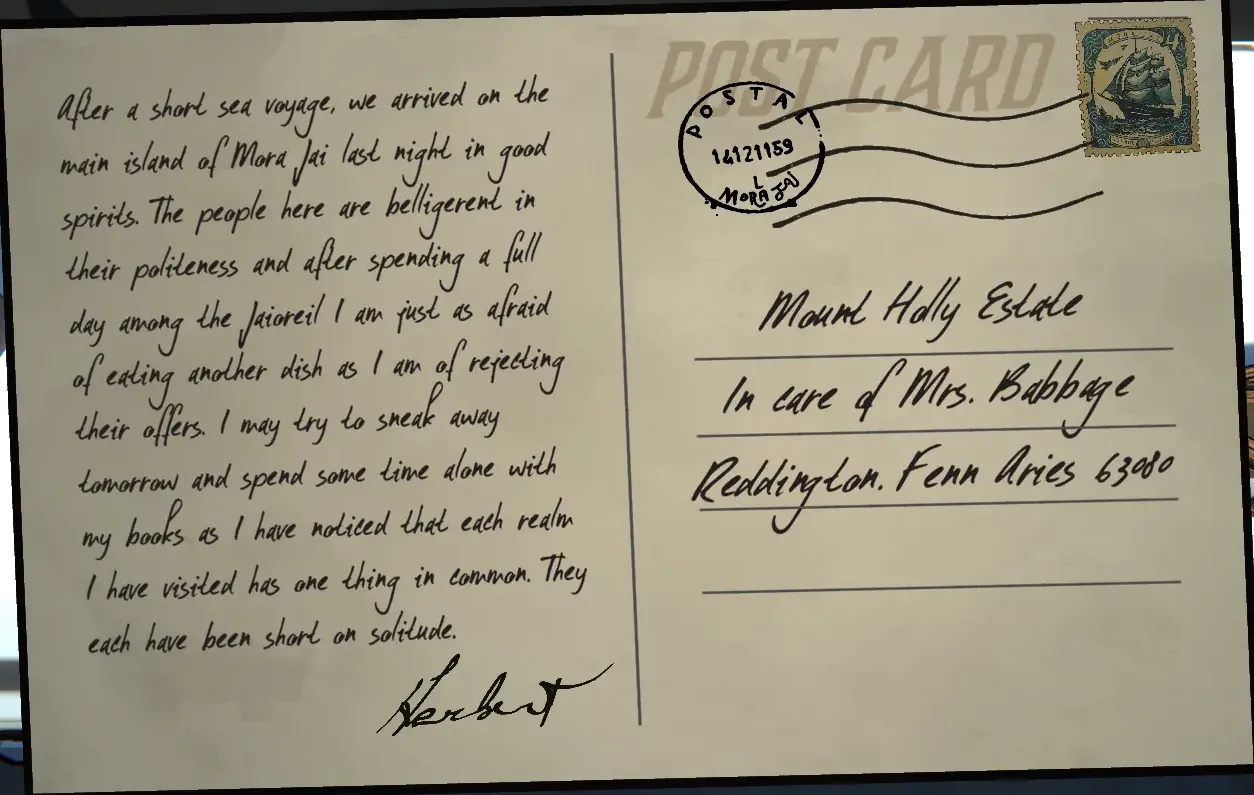 After a short sea voyage, we arrived on the
main island of Mora Jai last night in good
spirits. The people here are belligerent in
their politeness and after spending a full
day among the Jaioreil I am just as afraid
of eating another dish as I am of rejecting
their offers. I may try to sneak away
tomorrow and spend some time alone with
my books as I have noticed that each realm
I have visited has one thing in common. They
each have been short on solitude.
Herbert
POST CARD
POSTAL
14121159
L
MORA JAI
4
Mount Holly Estate
In care of Mrs. Babbage
Reddington. Fenn Aries 63080